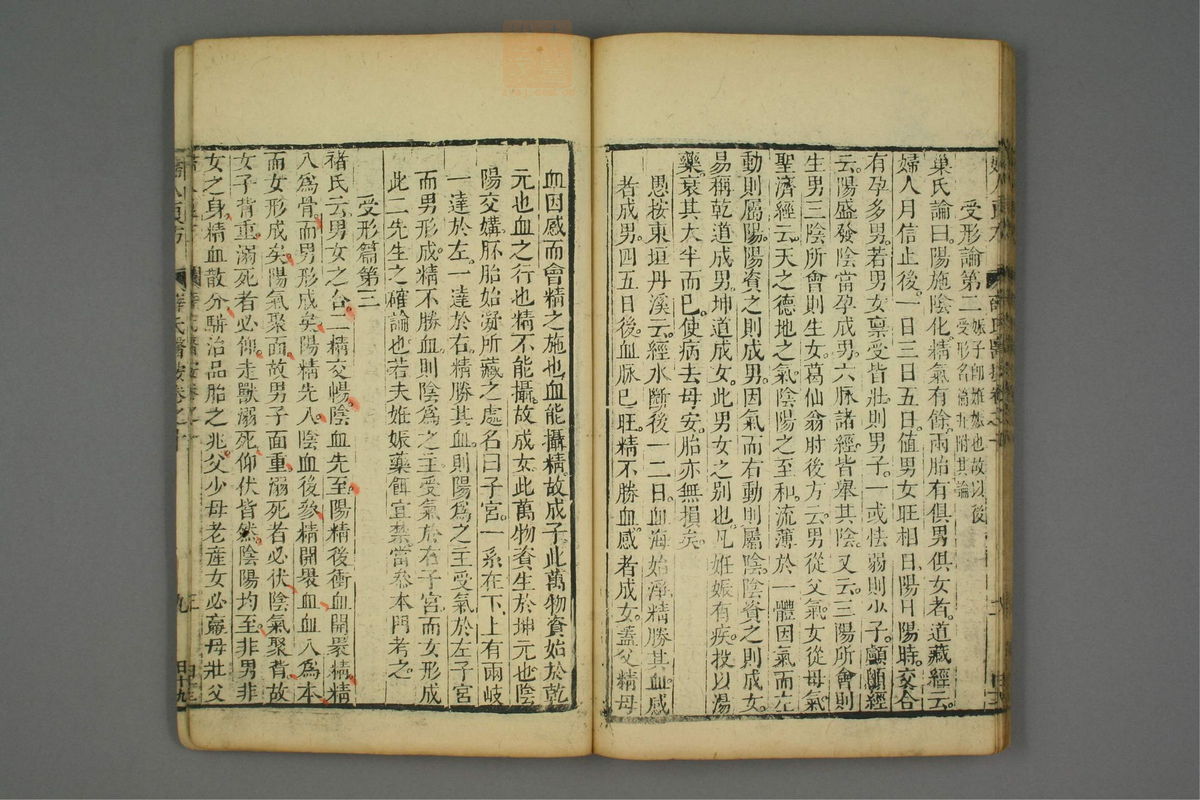 受形論第二娠子卽姙娠也故以後
受形名篇并附其論
巢氏論曰陽施陰化精氣有餘兩胎有俱男俱女者道藏經云
婦人月信止後一日三日五日值男女旺相日陽日陽時交合
有孕多男若男女稟受皆壯則男子一或怯弱則少子顱顖經
云陽盛發陰當孕成男六脉諸經皆舉其陰又云三陽所會則
生男三陰所會則生女葛仙翁肘後方云男從父氣女從母氣
聖濟經云天之德地之氣陰陽之至和流薄於一體因氣而左
動則屬陽陽資之則成男因氣而右動則屬陰陰資之則成女
易稱乾道成男坤道成女此男女之別也凡姙娠有疾投以湯
藥衰其大半而已使病去母安胎亦無損矣
愚按東垣丹溪云經水斷後一二日血海始淨精勝其血感
者成男四五日後血脉已旺精不勝血感者成女蓋父精母
血因感而會精之施也血能攝精故成子此萬物資始於乾
元也血之行也精不能攝故成女此萬物資生於坤元也陰
陽交媾胚胎始凝所藏之處名曰子宮一系在下上有兩岐
一達於左一達於右精勝其血則陽爲之主受氣於左子宮
而男形成精不勝血則陰爲之主受氣於右子宮而女形成
此二先生之確論也若夫姙娠藥餌宜禁當忝本門考之
受形篇第三
褚氏云男女之合二精交暢陰血先至陽精後衝血開裹精精
入爲骨而男形成矣陽精先入陰血後參精開裹血血入爲本
而女形成矣陽氣聚面故男子面重溺死者必伏陰氣聚背故
女子背重溺死者必仰走獸溺死仰伏皆然陰陽均至非男非
女之身精血散分騈治品胎之兆父少母老産女必羸母壯父
九